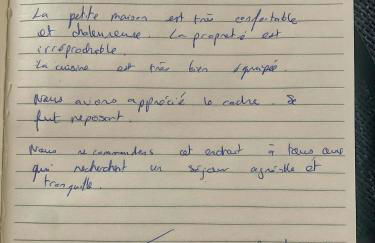 La petite maison est très confortable
et chaleureuse. La propreté est
irréprochable.
La cuisine est très bien équipée.
Nous avons apprécié le cadre. Ce
fut reposant.
Nous recommandons cet endroit à tous ceux
qui recherchent un séjour agréable et
tranquille.